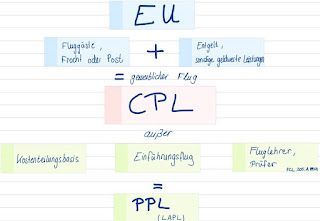 EU
Fluggäste,
Fracht oder Post
+
Entgelt,
sonstige geldwerte Leistungen
= gewerblicher Flug
CPL
außer
Kostenteilungsbasis
Einführungsflug
Fluglehrer,
Prüfer
=
PPL
(LAPL)